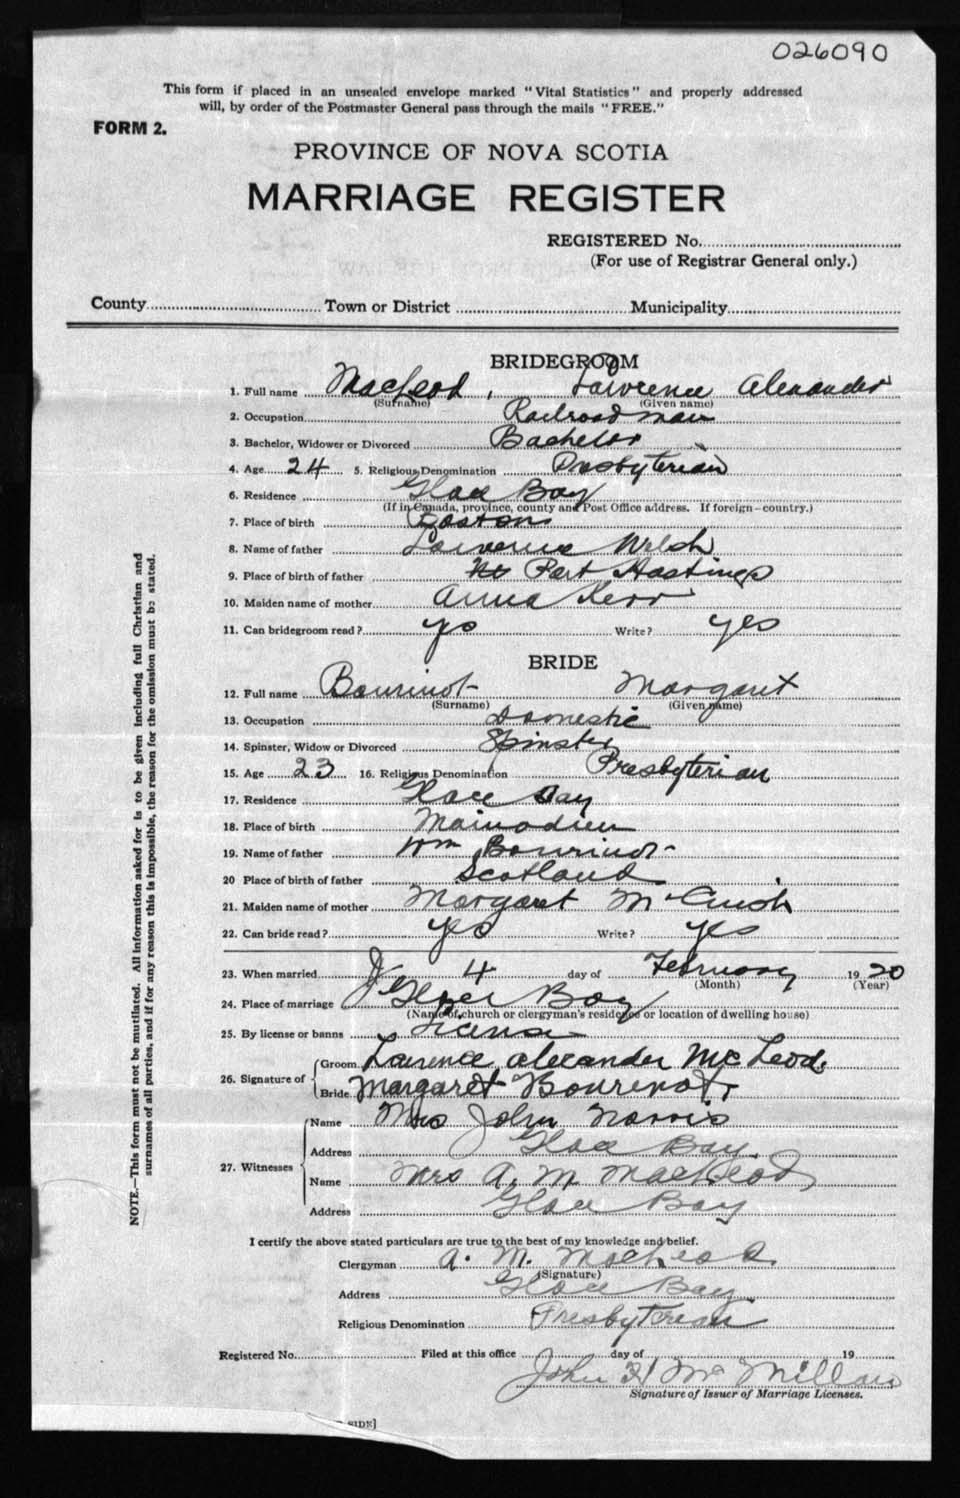 026090
This form if placed in an unsealed envelope marked "Vital Statistics" and properly addressed
will, by order of the Postmaster General pass through the mails "FREE."
FORM 2.
PROVINCE OF NOVA SCOTIA
MARRIAGE REGISTER
REGISTERED No.
(For use of Registrar General only.)
County Town or District Municipality
BRIDEGROOM
1. Full name MacLeod, Lawrence Alexander
(Surname) (Given name)
2. Occupation Railroad man
3. Bachelor, Widower or Divorced Bachelor
4. Age 24 5. Religious Denomination Presbyterian
6. Residence Glace Bay
(If in Canada, province, county and Post Office address. If foreign—country.)
7. Place of birth Boston
8. Name of father Lawrence Welsh
9. Place of birth of father Port Hastings
10. Maiden name of mother Anna Kerr
11. Can bridegroom read? yes Write? yes
BRIDE
12. Full name Bourinot Margaret
(Surname) (Given name)
13. Occupation Domestic
14. Spinster, Widow or Divorced Spinster
15. Age 23 16. Religious Denomination Presbyterian
17. Residence Glace Bay
18. Place of birth Mainadieu
19. Name of father Wm Bourinot
20 Place of birth of father Scotland
21. Maiden name of mother Margaret McCuish
22. Can bride read? yes Write? yes
23. When married 4 day of February 1920
(Month) (Year)
24. Place of marriage Glace Bay
(Name of church or clergyman's residence or location of dwelling house)
25. By license or banns License
26. Signature of Groom Lawrence Alexander McLeod.
Bride Margaret Bourinot
27. Witnesses Name Mrs John Norris
Address Glace Bay.
Name Mrs A. M. MacLeod
Address Glace Bay
I certify the above stated particulars are true to the best of my knowledge and belief.
Clergyman A. M. MacLeod
(Signature)
Address Glace Bay
Religious Denomination Presbyterian
Registered No. Filed at this office day of 19
John H McMillan
Signature of Issuer of Marriage Licenses.
SIDE]
NOTE.—This form must not be mutilated. All information asked for is to be given including full Christian and
surnames of all parties, and if for any reason this is impossible, the reason for the omission must be stated.